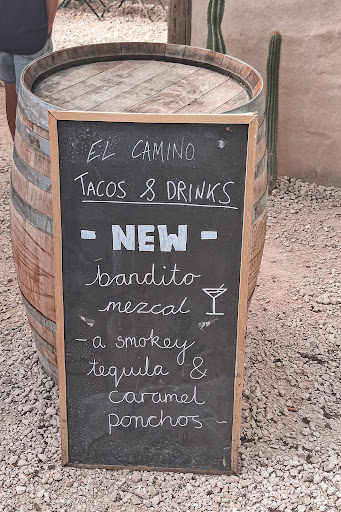 EL CAMINO
TACOS & DRINKS
- NEW -
bandito
mezcal
- a smokey
tequila &
caramel
ponchos -